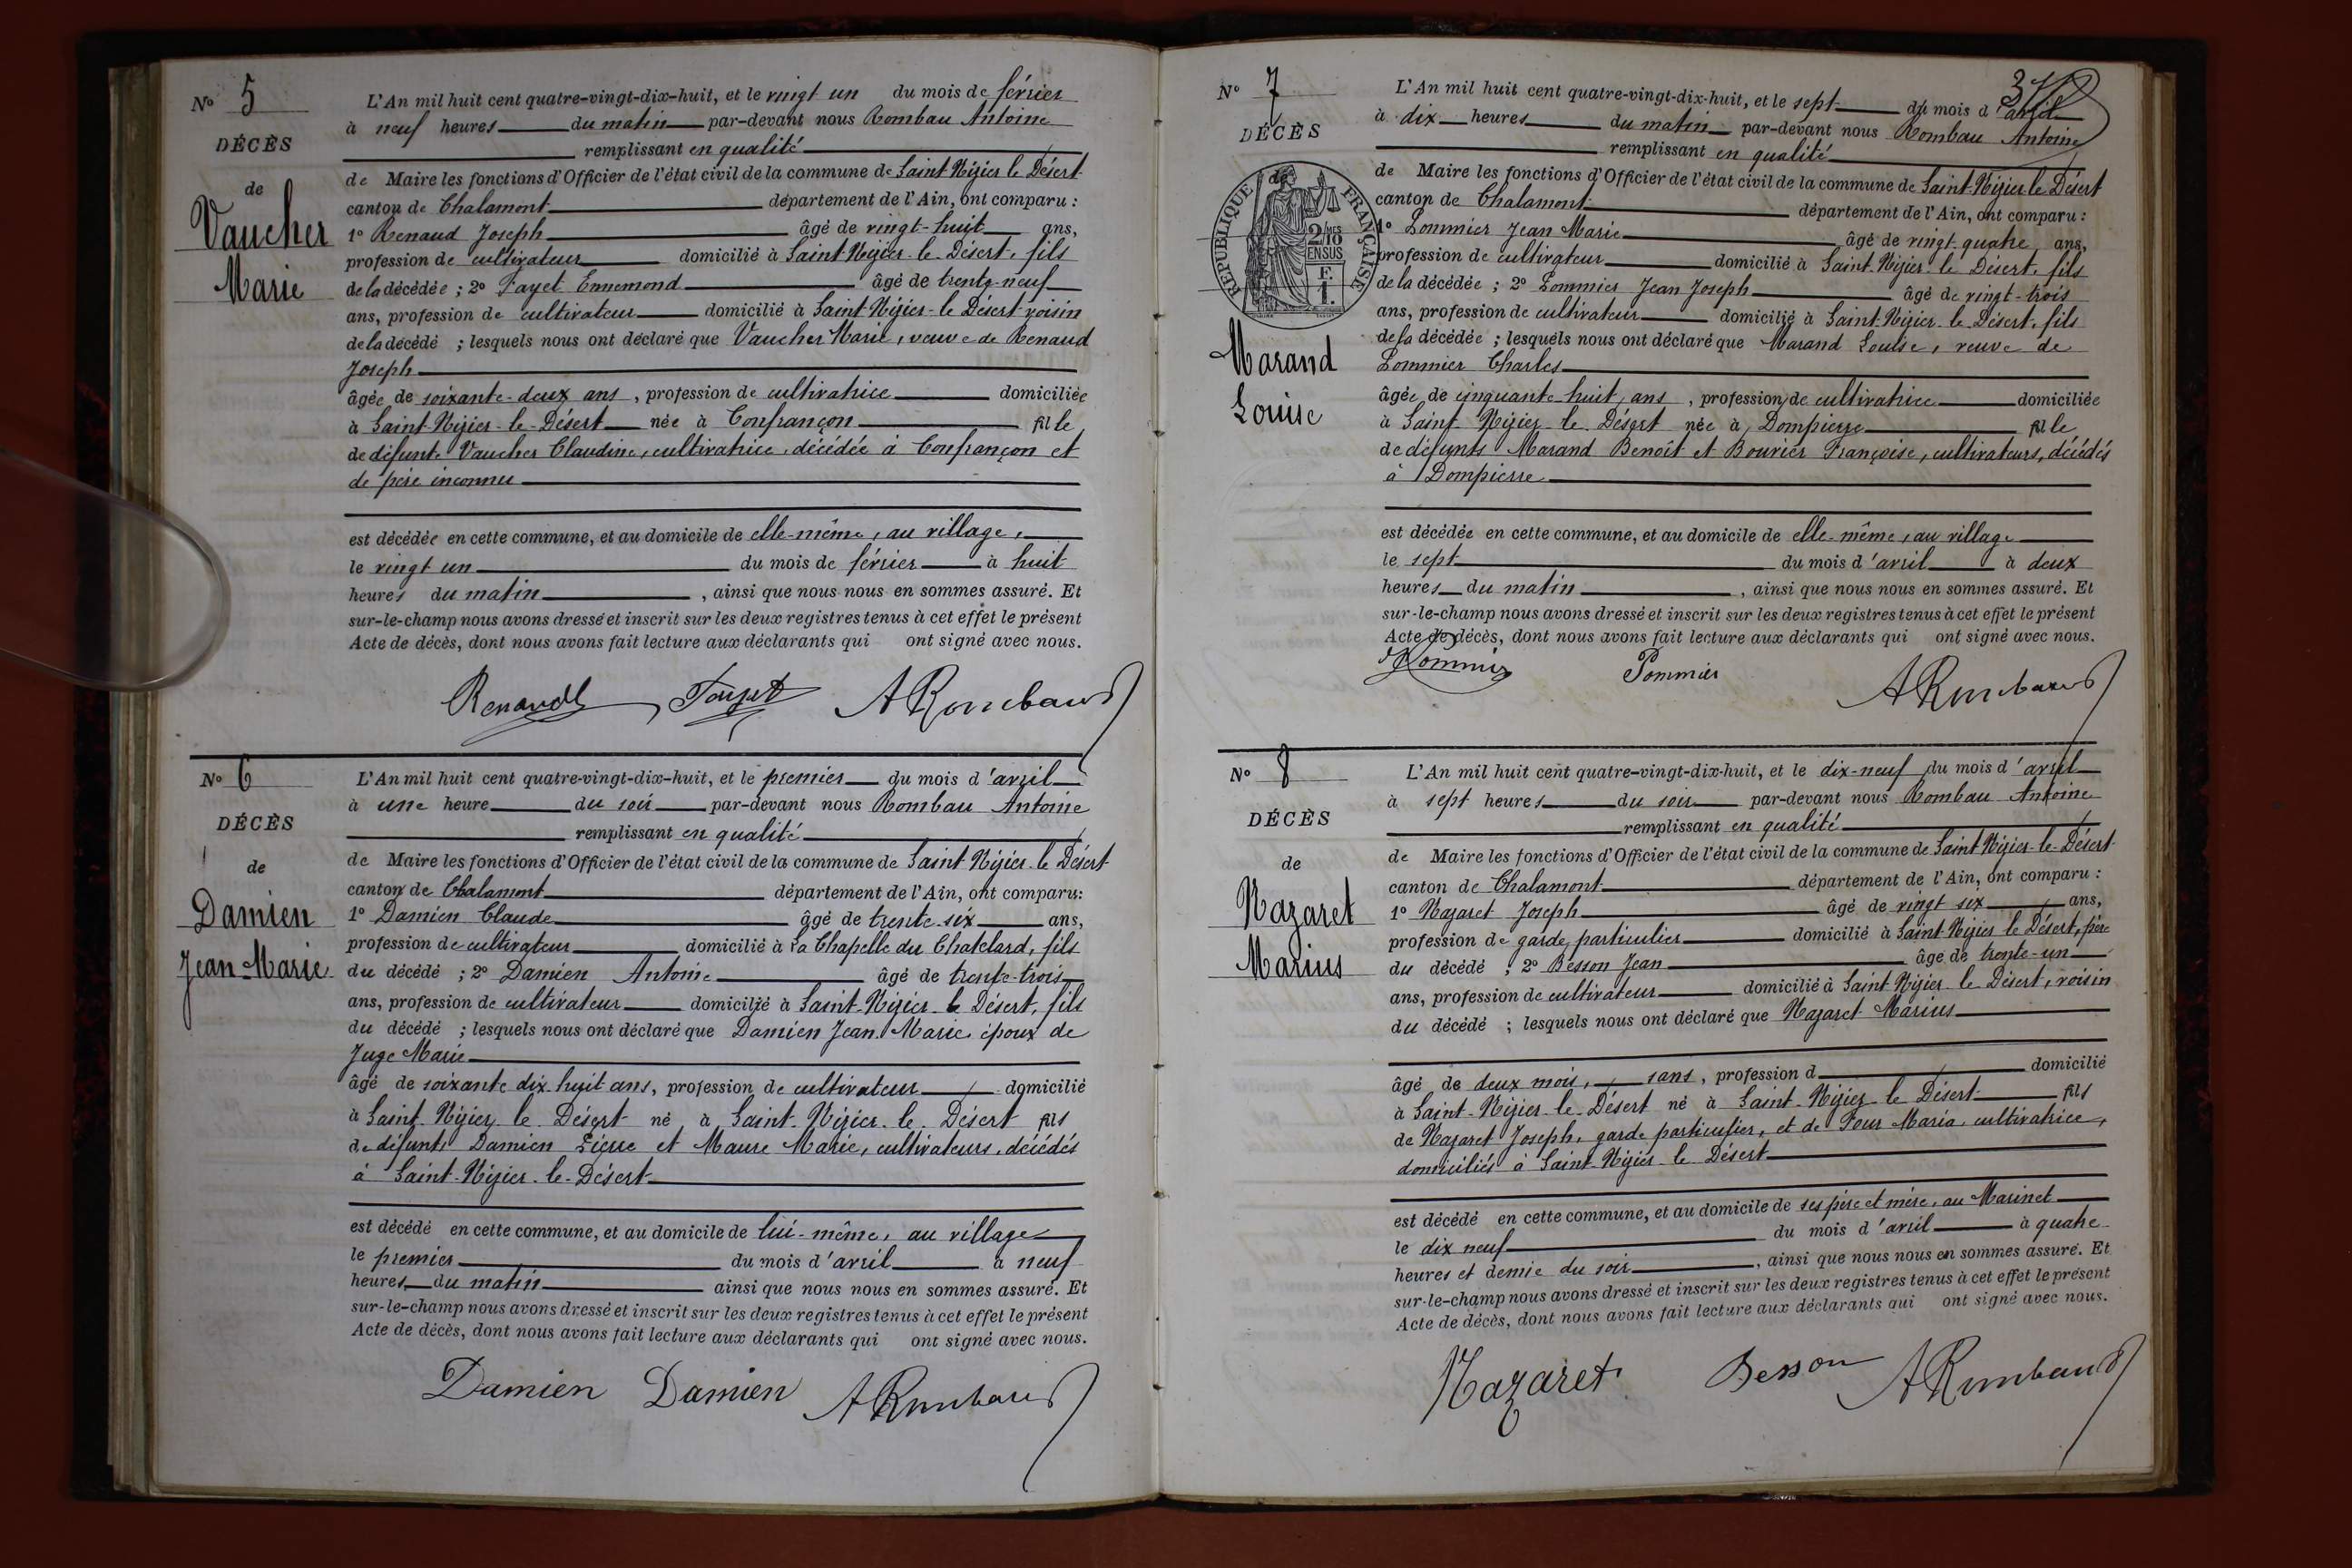 N° 5
DÉCÈS
de
Vaucher
Marie
L'An mil huit cent quatre-vingt-dix-huit, et le vingt un du mois de février
à neuf heures du matin par-devant nous Rombau Antoine
remplissant en qualité
de Maire les fonctions d'Officier de l'état civil de la commune de Saint Nizier le Désert
canton de Chalamont département de l'Ain, ont comparu :
1° Renaud Joseph âgé de vingt-huit ans,
profession de cultivateur domicilié à Saint-Nizier-le-Désert, fils
de la décédée ; 2° Fayet Ennemond âgé de trente-neuf
ans, profession de cultivateur domicilié à Saint-Nizier-le Désert voisin
de la décédé ; lesquels nous ont déclaré que Vaucher Marie, veuve de Renaud
Joseph
âgée de soixante-deux ans, profession de cultivatrice domiciliée
à Saint-Nizier-le-Désert née à Confrançon fille
de défunte Vaucher Claudine, cultivatrice décédée à Confrançon et
de père inconnu
est décédée en cette commune, et au domicile de elle-même, au village,
le vingt un du mois de février à huit
heures du matin, ainsi que nous nous en sommes assuré. Et
sur-le-champ nous avons dressé et inscrit sur les deux registres tenus à cet effet le présent
Acte de décès, dont nous avons fait lecture aux déclarants qui ont signé avec nous.
Renaud ARombaud
N° 6
DÉCÈS
de
Damien
Jean-Marie
L'An mil huit cent quatre-vingt-dix-huit, et le premier du mois d'avril
à une heure du soir par-devant nous Rombau Antoine
remplissant en qualité
de Maire les fonctions d'Officier de l'état civil de la commune de Saint Nizier-le Désert
canton de Chalamont département de l'Ain, ont comparu:
1° Damien Claude âgé de trente-six ans,
profession de cultivateur domicilié à La Chapelle du Chatelard, fils
du décédé ; 2° Damien Antoine âgé de trente-trois
ans, profession de cultivateur domicilié à Saint-Nizier-le Désert, fils
du décédé ; lesquels nous ont déclaré que Damien Jean-Marie époux de
Juge Marie
âgé de soixante dix-huit ans, profession de cultivateur domicilié
à Saint-Nizier le Désert né à Saint-Nizier-le Désert fils
de défunts Damien Pierre et Maure Marie, cultivateurs, décédés
à Saint-Nizier-le-Désert
est décédé en cette commune, et au domicile de lui-même, au village
le premier du mois d'avril à neuf
heures du matin ainsi que nous nous en sommes assuré. Et
sur-le-champ nous avons dressé et inscrit sur les deux registres tenus à cet effet le présent
Acte de décès, dont nous avons fait lecture aux déclarants qui ont signé avec nous.
Damien Damien ARombaud
N° 7
DÉCÈS
de
RÉPUBLIQUE FRANÇAISE
2/10 MES
EN SUS
F.
1.
Marand
Louise
L'An mil huit cent quatre-vingt-dix-huit, et le sept du mois d'avril
à dix heures du matin par-devant nous Rombau Antoine
remplissant en qualité
de Maire les fonctions d'Officier de l'état civil de la commune de Saint-Nizier le Désert
canton de Chalamont département de l'Ain, ont comparu :
1° Pommier Jean Marie âgé de vingt-quatre ans,
profession de cultivateur domicilié à Saint-Nizier-le Désert, fils
de la décédée ; 2° Pommier Jean Joseph âgé de vingt-trois
ans, profession de cultivateur domicilié à Saint-Nizier-le-Désert, fils
de la décédée ; lesquels nous ont déclaré que Marand Louise, veuve de
Pommier Charles
âgée de cinquante-huit ans, profession de cultivatrice domiciliée
à Saint-Nizier-le-Désert née à Dompierre fille
de défunts Marand Benoît et Bouvier Françoise, cultivateurs, décédés
à Dompierre
est décédée en cette commune, et au domicile de elle-même, au village
le sept du mois d'avril à deux
heures du matin, ainsi que nous nous en sommes assuré. Et
sur-le-champ nous avons dressé et inscrit sur les deux registres tenus à cet effet le présent
Acte de décès, dont nous avons fait lecture aux déclarants qui ont signé avec nous.
Pommier Pommier ARombaud
N° 8
DÉCÈS
de
Nazaret
Marius
L'An mil huit cent quatre-vingt-dix-huit, et le dix-neuf du mois d'avril
à sept heures du soir par-devant nous Rombau Antoine
remplissant en qualité
de Maire les fonctions d'Officier de l'état civil de la commune de Saint Nizier-le-Désert
canton de Chalamont département de l'Ain, ont comparu :
1° Nazaret Joseph âgé de vingt six ans,
profession de garde particulier domicilié à Saint-Nizier le Désert, père
du décédé ; 2° Besson Jean âgé de trente-un
ans, profession de cultivateur domicilié à Saint Nizier le Désert, voisin
du décédé ; lesquels nous ont déclaré que Nazaret Marius
âgé de deux mois, sans, profession d domicilié
à Saint-Nizier-le-Désert né à Saint-Nizier-le Désert fils
de Nazaret Joseph, garde particulier, et de Four Maria, cultivatrice,
domiciliés à Saint-Nizier-le Désert
est décédé en cette commune, et au domicile de ses père et mère, au Marinet
le dix neuf du mois d'avril à quatre
heures et demie du soir, ainsi que nous nous en sommes assuré. Et
sur-le-champ nous avons dressé et inscrit sur les deux registres tenus à cet effet le présent
Acte de décès, dont nous avons fait lecture aux déclarants qui ont signé avec nous.
Nazaret Besson ARombaud